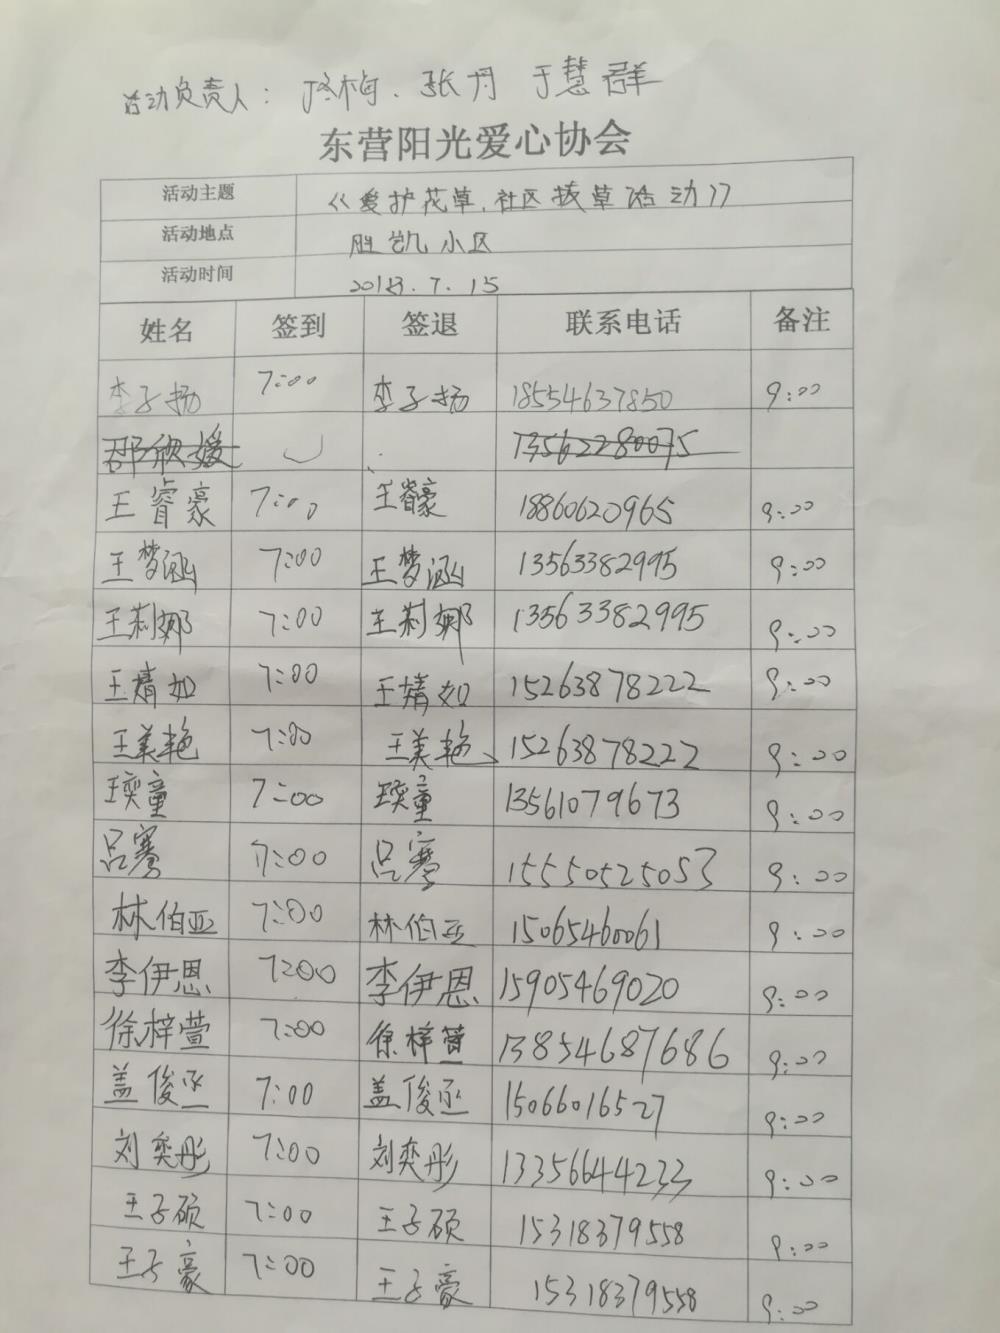 活动负责人：佟梅、张丹 于慧群
东营阳光爱心协会
活动主题 《爱护花草、社区拔草活动》
活动地点 胜凯小区
活动时间 2018.7.15
姓名 签到 签退 联系电话 备注
李子扬 7:00 李子扬 18554637850 9:00
邵欣媛 13562280075
王睿豪 7:00 王睿豪 18860620965 9:00
王梦涵 7:00 王梦涵 13563382995 9:00
王莉娜 7:00 王莉娜 13563382995 9:00
王婧如 7:00 王婧如 15263878222 9:00
王美艳 7:00 王美艳 15263878222 9:00
王奕童 7:00 王奕童 13561079673 9:00
吕骞 7:00 吕骞 15550525053 9:00
林伯亚 7:00 林伯亚 15065460061 9:00
李伊恩 7:00 李伊恩 15905469020 9:00
徐梓萱 7:00 徐梓萱 13854687686 9:00
盖俊丞 7:00 盖俊丞 15066016527 9:00
刘奕彤 7:00 刘奕彤 13356644233 9:00
王子硕 7:00 王子硕 15318379558 9:00
王子豪 7:00 王子豪 15318379558 9:00